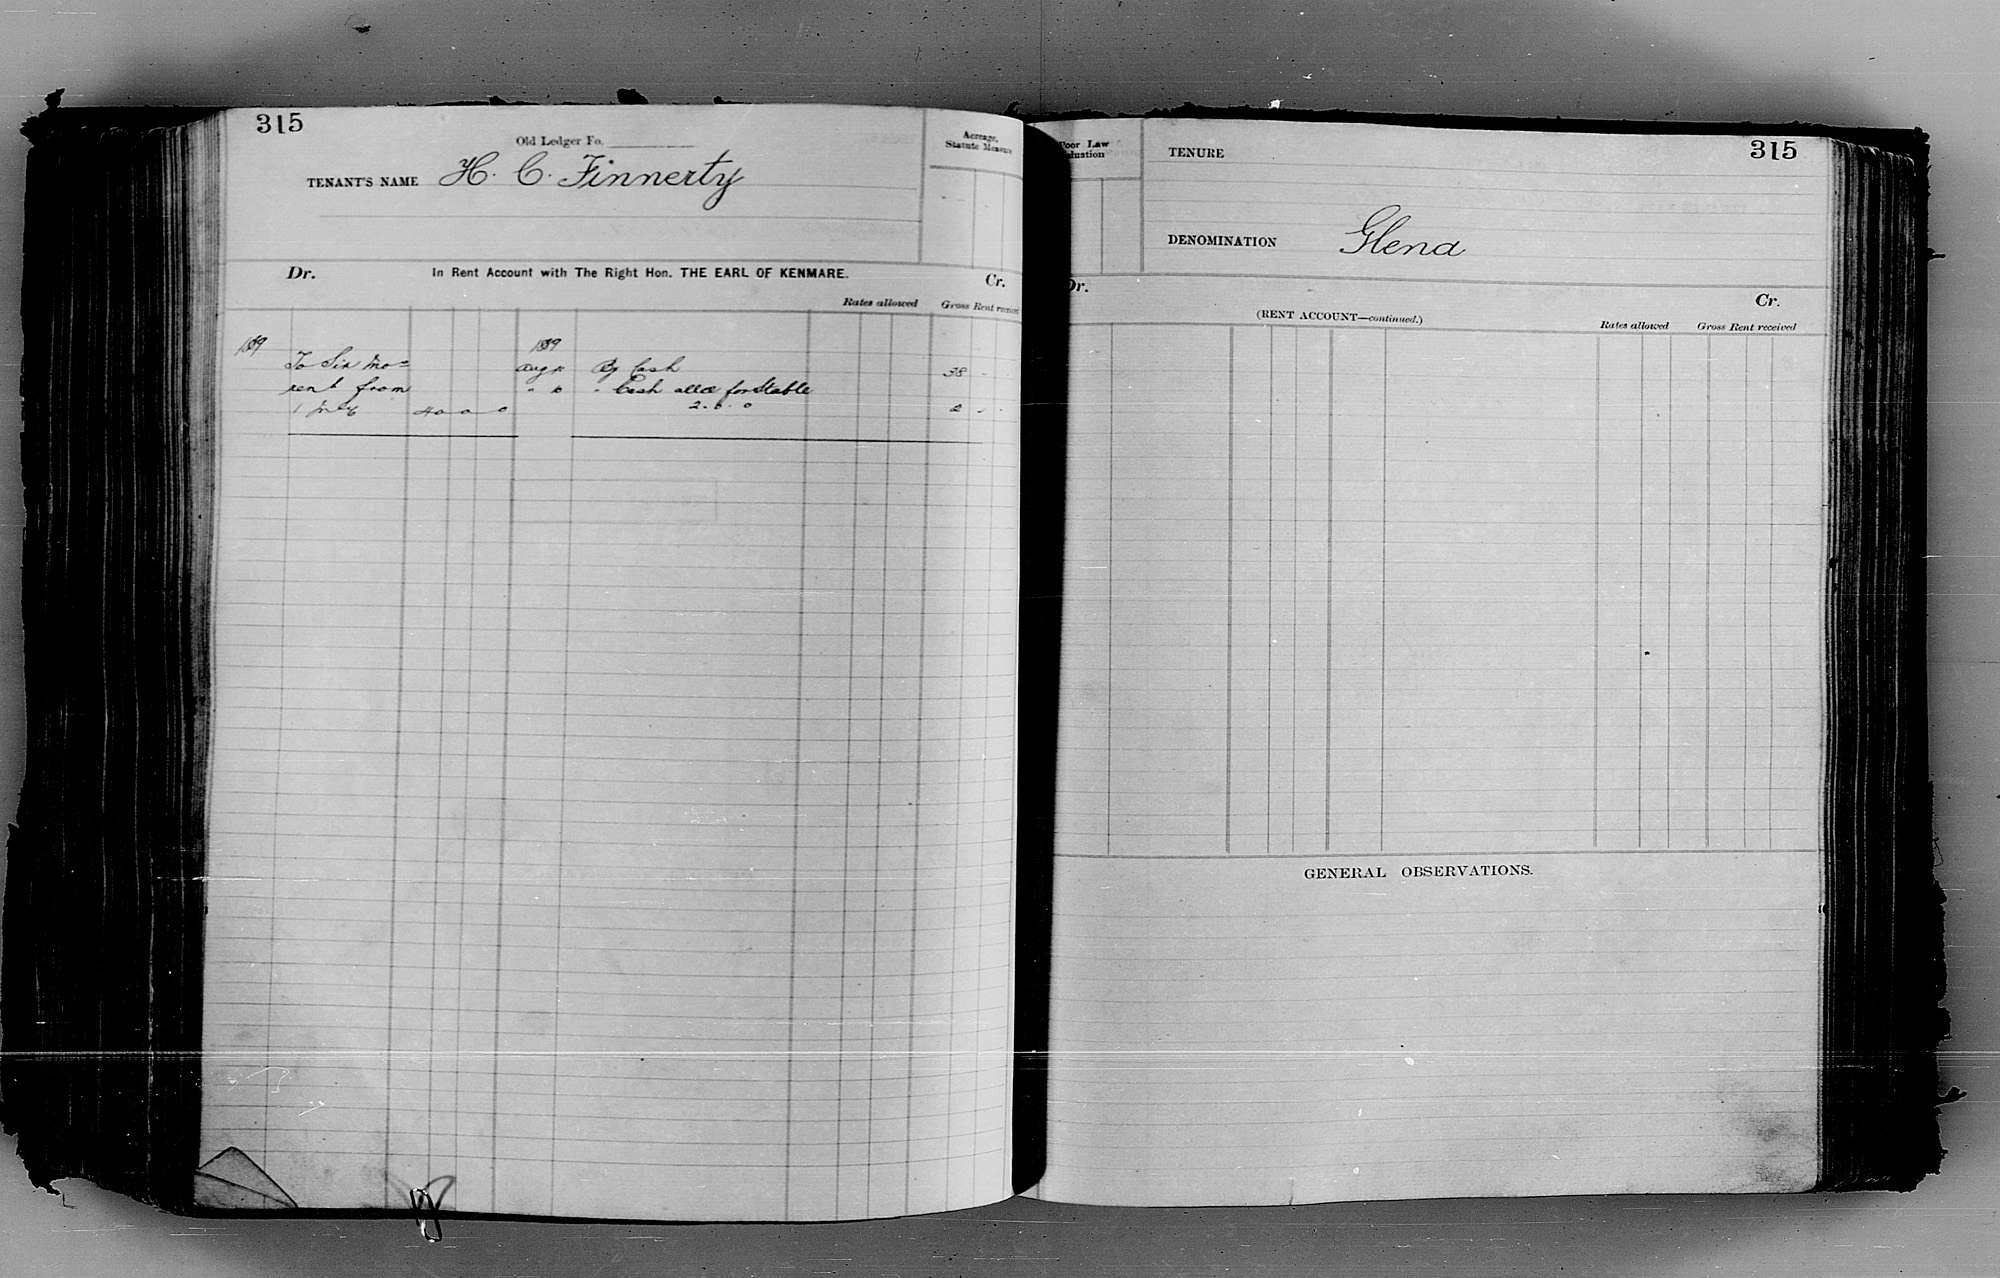 315
Old Ledger Fo.
TENANT'S NAME H. C. Finnerty
Acreage,
Statute Measure
Dr. In Rent Account with The Right Hon. THE EARL OF KENMARE. Cr.
Rates allowed Gross Rent received
To Six Mos By Cash 38 -
rent from " " " Cash allce for Stable
40 0 0 2. 0. 0 2 - -
315
Poor Law
Valuation
TENURE
DENOMINATION Glena
Dr. Cr.
(RENT ACCOUNT—continued.)
Rates allowed Gross Rent received
GENERAL OBSERVATIONS.